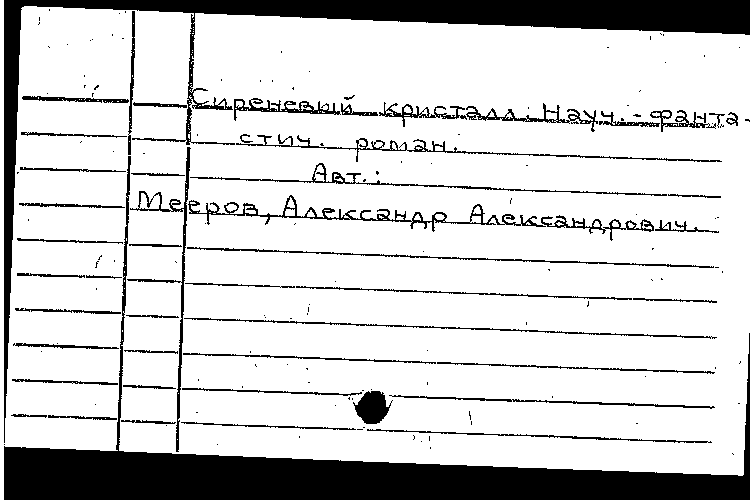 Сиреневый кристалл. Науч.-фанта-
стич. роман.
Авт.:
Мееров, Александр Александрович.